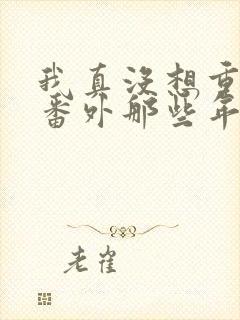 我真没想重
番外那些年
老雀